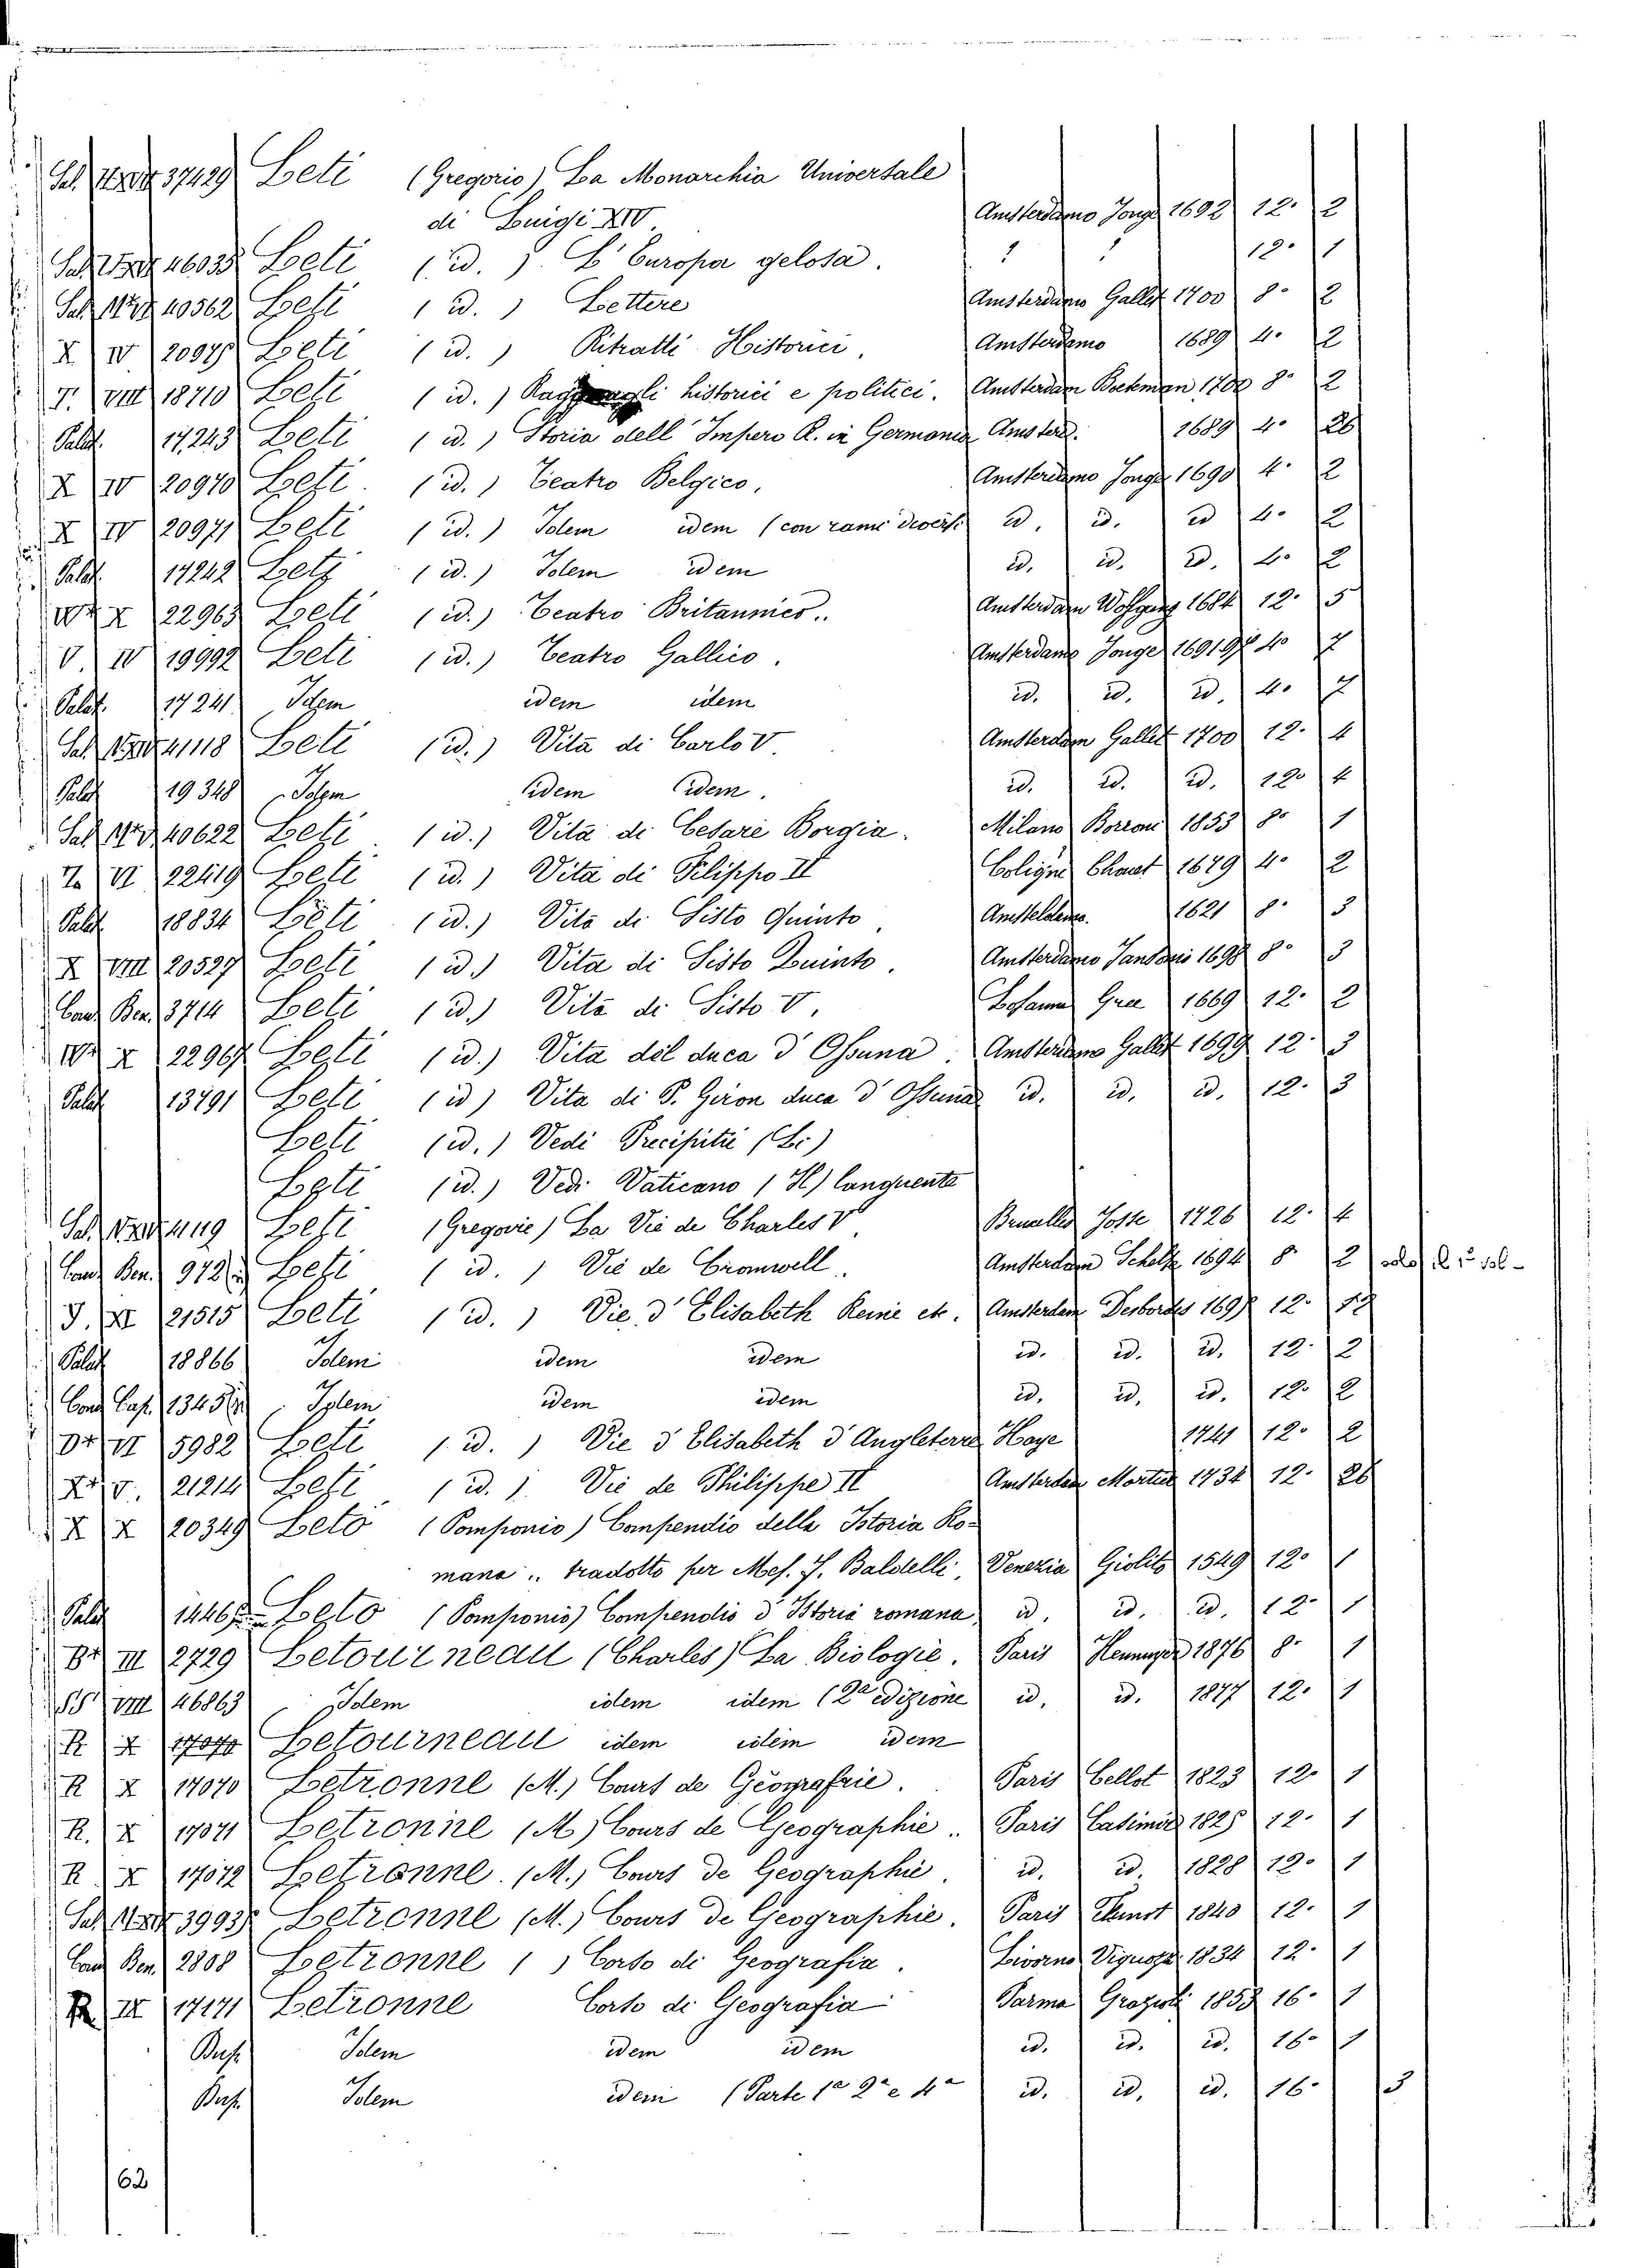 37429 Leti (Gregorio) La Monarchia Universale
di Luigi XIV. Amsterdamo Jonge 1692 12° 2
46035 Leti (id.) L'Europa gelosa. 12° 1
40562 Leti (id.) Lettere Amsterdamo Gallet 1700 8° 2
X IV 20975 Leti (id.) Ritratti Historici. Amsterdamo 1689 4° 2
T. VIII 18710 Leti (id.) Ragguagli historici e politici. Amsterdam Boekman 1700 8° 2
Palat. 17243 Leti (id.) Storia dell'Impero R. in Germania Amsterd. 1689 4°
X IV 20970 Leti (id.) Teatro Belgico. Amsterdamo Jonge 1690 4° 2
X IV 20971 Leti (id.) Idem idem (con rami diversi id. id. id 4° 2
Palat. 17242 Leti (id.) Idem idem id. id. id. 4° 2
X 22963 Leti (id.) Teatro Britannico. Amsterdam Wolfgang 1684 12° 5
V IV 19992 Leti (id.) Teatro Gallico. Amsterdamo Jonge 1691 97 4° 7
Palat. 17241 Idem idem idem id. id. id. 4° 7
41118 Leti (id.) Vita di Carlo V. Amsterdam Gallet 1700 12° 4
Palat 19348 Idem idem idem. id. id. id. 12° 4
40622 Leti (id.) Vita di Cesare Borgia. Milano Borroni 1853 8° 1
VI 22419 Leti (id.) Vita di Filippo II Coligni Chouet 1679 4° 2
Palat 18834 Leti (id.) Vita di Sisto Quinto, 1621 8° 3
X VIII 20527 Leti (id.) Vita di Sisto Quinto. Amsterdamo Janssonio 1698 8° 3
Cand Ben. 3714 Leti (id.) Vita di Sisto V. Losanna Gree 1669 12° 2
X 22967 Leti (id.) Vita del duca d'Ossuna. Amsterdamo Gallet 1699 12° 3
Palat 13791 Leti (id) Vita di P. Giron duca d'Ossuna id. id. id. 12° 3
Leti (id.) Vedi Precipitii (Li)
Leti (id.) Vedi Vaticano (Il) languente
41119 Leti (Gregorie) La Vie de Charles V Bruxelles Josse 1726 12° 4
Cand Ben. 972 Leti (id.) Vie de Cromwell. Amsterdam Schelte 1694 8° 2
T. XI 21515 Leti (id.) Vie d'Elisabeth Reine etc. Amsterdam Desbordes 1697 12°
Palat 18866 Idem idem idem id. id. id. 12° 2
Cond Cap. 1345 Idem idem idem id. id. id. 12° 2
VI 5982 Leti (id.) Vie d'Elisabeth d'Angleterre Haye 1741 12° 2
V. 21214 Leti (id.) Vie de Philippe II Amsterdam Mortier 1734 12°
X X 20349 Leto (Pomponio) Compendio della Istoria Ro-
mana .. tradotto per Mes. F. Baldelli, Venezia Giolito 1549 12° 1
Palat 14467 Leto (Pomponio) Compendio d'Istoria romana id. id. id. 12° 1
III 2729 Letourneau (Charles) La Biologie. Paris 1876 8° 1
VIII 46863 Idem idem idem (2ª edizione id. id. 1877 12° 1
R X 17070 Letourneau idem idem idem
R X 17070 Letronne (M.) Cours de Géografie. Paris Bellot 1823 12° 1
R. X 17071 Letronne (M) Cours de Geographie. Paris Casimir 1825 12° 1
R X 17072 Letronne. (M.) Cours de Geographie. id. id. 1828 12° 1
39937 Letronne (M.) Cours de Geographie. Paris 1840 12° 1
Cand Ben. 2808 Letronne ( ) Corso di Geografia. Livorno Vignozzi 1834 12° 1
17171 Letronne Corso di Geografia Parma Grazioli 1853 16° 1
Idem idem idem id. id. id. 16° 1
Idem idem (Parte 1ª 2ª e 4ª id. id. id. 16° 3
62